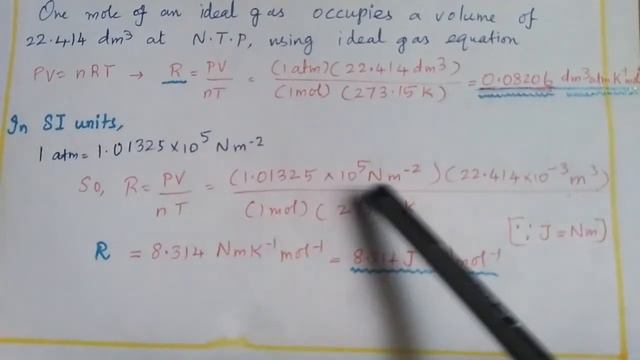 One mole of an ideal gas occupies a volume of
22.414 dm³ at N.T.P, using ideal gas equation
PV = nRT → R = PV/nT = (1 atm)(22.414 dm³)/(1 mol)(273.15 K) = 0.08206 dm³ atm K⁻¹
In SI units,
1 atm = 1.01325 × 10⁵ Nm⁻²
So, R = PV/nT = (1.01325 × 10⁵ Nm⁻²)(22.414 × 10⁻³ m³)/(1 mol)(2 K
[∵ J = Nm]
R = 8.314 NmK⁻¹ mol⁻¹ = 8.314 J mol⁻¹